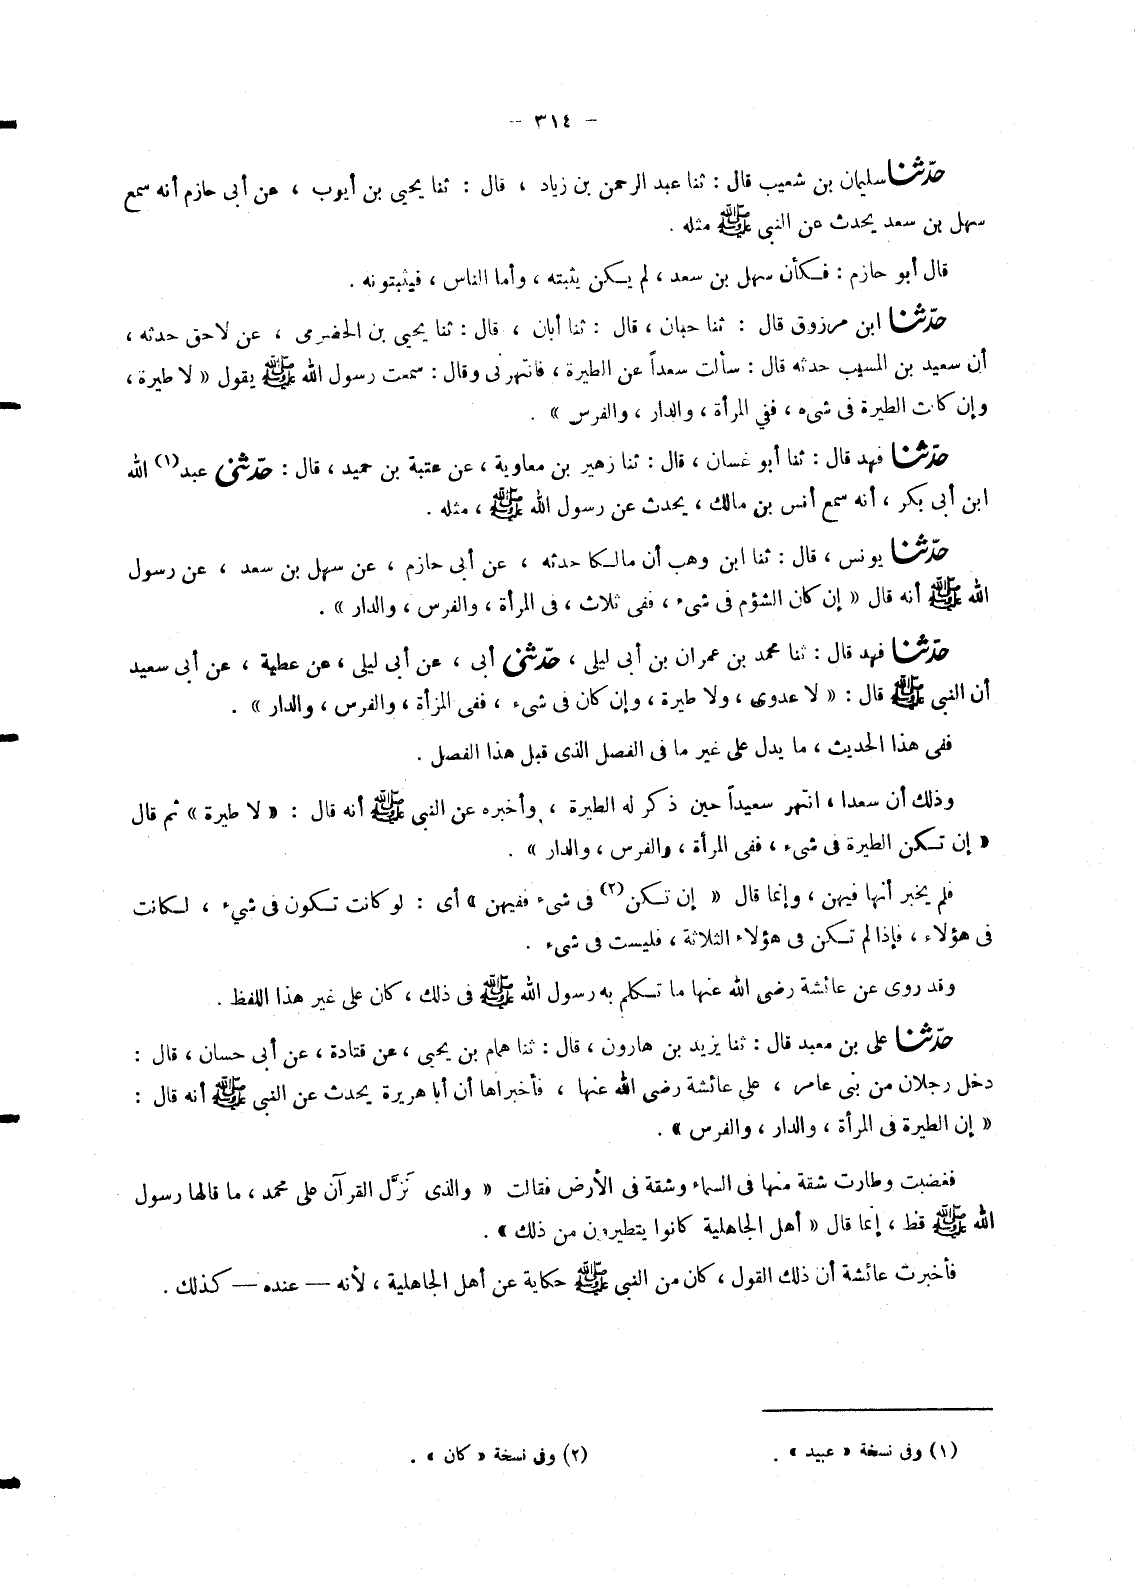 - ٣١٤ -
حدّثنا سليمان بن شعيب قال : ثنا عبد الرحمن بن زياد ، قال : ثنا يحيى بن أيوب ، عن أبى حازم أنه سمع
سهل بن سعد يحدث عن النبى ﷺ مثله .
قال أبو حازم : فكأن سهل بن سعد ، لم يكن يثبته ، وأما الناس ، فيثبتونه .
حدّثنا ابن مرزوق قال : ثنا حبان ، قال : ثنا أبان ، قال : ثنا يحيى بن الحضرمى ، عن لاحق حدثه ،
أن سعيد بن المسيب حدثه قال : سألت سعداً عن الطيرة ، فانتهرنى وقال : سمعت رسول الله ﷺ يقول « لا طيرة ،
وإن كانت الطيرة فى شىء ، ففي المرأة ، والدار ، والفرس » .
حدّثنا فهد قال : ثنا أبو غسان ، قال : ثنا زهير بن معاوية ، عن عتبة بن حميد ، قال : حدّثنى عبد(١) الله
ابن أبى بكر ، أنه سمع أنس بن مالك ، يحدث عن رسول الله ﷺ ، مثله .
حدّثنا يونس ، قال : ثنا ابن وهب أن مالكا حدثه ، عن أبى حازم ، عن سهل بن سعد ، عن رسول
الله ﷺ أنه قال « إن كان الشؤم فى شىء ، ففى ثلاث ، فى المرأة ، والفرس ، والدار » .
حدّثنا فهد قال : ثنا محمد بن عمران بن أبى ليلى ، حدّثنى أبى ، عن أبى ليلى ، عن عطية ، عن أبى سعيد
أن النبى ﷺ قال : « لا عدوى ، ولا طيرة ، وإن كان فى شىء ، ففى المرأة ، والفرس ، والدار » .
ففى هذا الحديث ، ما يدل على غير ما فى الفصل الذى قبل هذا الفصل .
وذلك أن سعدا ، انتهر سعيداً حين ذكر له الطيرة ، وأخبره عن النبى ﷺ أنه قال : « لا طيرة » ثم قال
« إن تكن الطيرة فى شىء ، ففى المرأة ، والفرس ، والدار » .
فلم يخبر أنها فيهن ، وإنما قال « إن تكن(٢) فى شىء ففيهن » أى : لو كانت تكون فى شيء ، لكانت
فى هؤلاء ، فإذا لم تكن فى هؤلاء الثلاثة ، فليست فى شىء .
وقد روى عن عائشة رضى الله عنها ما تكلم به رسول الله ﷺ فى ذلك ، كان على غير هذا اللفظ .
حدّثنا على بن معبد قال : ثنا يزيد بن هارون ، قال : ثنا همام بن يحيى ، عن قتادة ، عن أبى حسان ، قال :
دخل رجلان من بنى عامر ، على عائشة رضى الله عنها ، فأخبراها أن أبا هريرة يحدث عن النبى ﷺ أنه قال :
« إن الطيرة فى المرأة ، والدار ، والفرس » .
فغضبت وطارت شقة منها فى السماء وشقة فى الأرض فقالت « والذى نَزَّل القرآن على محمد ، ما قالها رسول
الله ﷺ قط ، إنما قال « أهل الجاهلية كانوا يتطيرون من ذلك » .
فأخبرت عائشة أن ذلك القول ، كان من النبى ﷺ حكاية عن أهل الجاهلية ، لأنه — عنده — كذلك .
(١) وفى نسخة « عبيد » .
(٢) وفى نسخة « كان » .